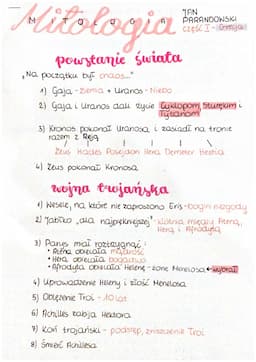 Mitologia
MITOLOGIA
JAN
PARANDOWSKI
CZĘŚĆ I - Grecja
powstanie świata
"Na początku był chaos..."
1) Gaja - ziemia + Uranos - Niebo
2) Gaja i Uranos dali życie Cyklopom, Sturękim i
Tytanom
3) Kronos pokonał Uranosa, i zasiadł na tronie
razem z Reją
Zeus Hades Posejdon Hera Demeter Hestia
4) Zeus pokonał Kronosa
wojna trojańska
1) Wesele, na które nie zaproszono Eris - bogini niezgody
2) Jabłko "dla najpiękniejszej" - kłótnia między Ateną,
Herą i Afrodytą
3) Parys miał rozstrzygnąć:
• Atena obiecała mądrość
• Hera obiecała bogactwo
• Afrodyta obiecała Helenę - żonę Menelaosa ← wybrał
4) Uprowadzenie Heleny i złość Menelaosa
5) Oblężenie Troi - 10 lat
6) Achilles zabija Hektora
7) Koń trojański - podstęp, zniszczenie Troi
8) Śmierć Achillesa